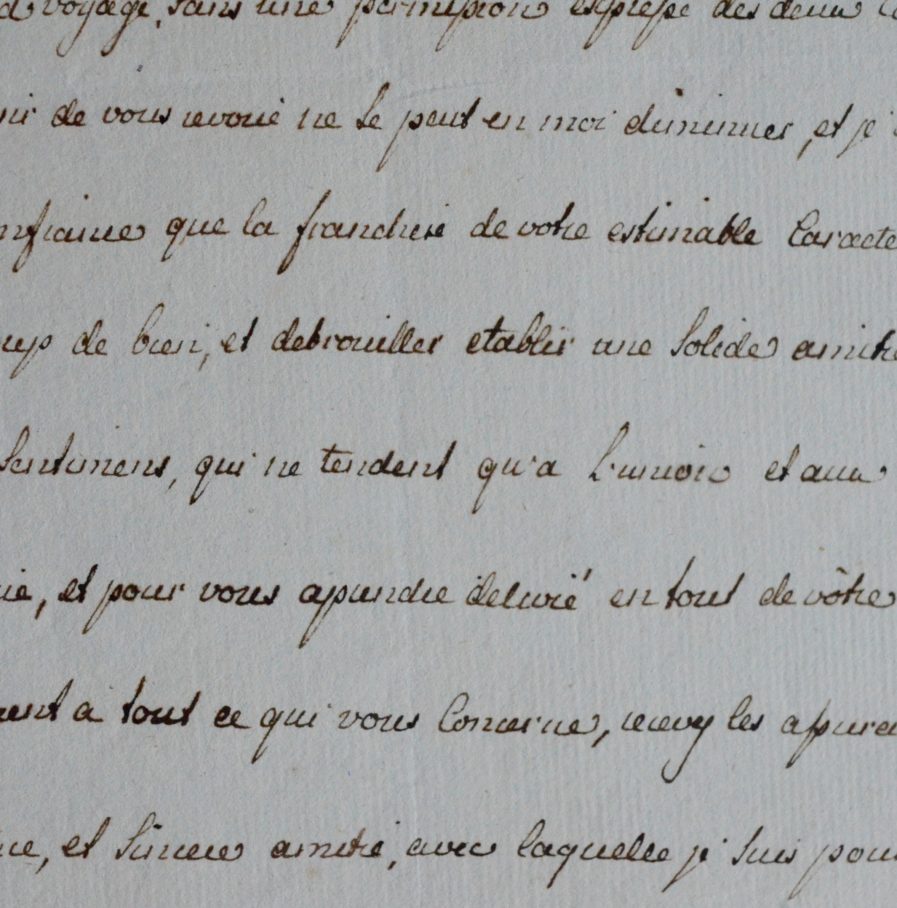 voyage, sans une permission expresse des deux
de vous revoir ne se peut en moi diminuer, et je
que la franchise de votre estimable Caracte
de bien, et debrouiller etablir une Solide amitié
Sentimens, qui ne tendent qu'a L'union et aux
et pour vous aprendre en tout de vôtre
a tout ce qui vous Concerne, recevez les
et Sincere amitié, avec laquelle je suis pour